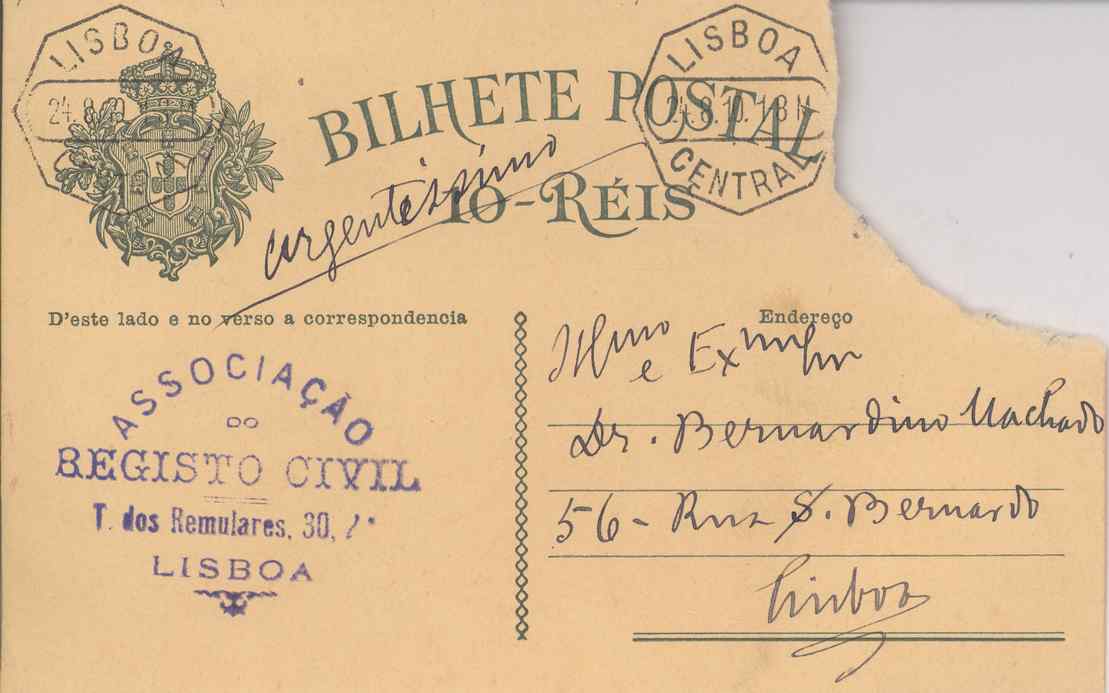 LISBOA
24.8.10
LISBOA
24.8.10.18H
CENTRAL
BILHETE POSTAL
10-RÉIS
urgentissimo
D'este lado e no verso a correspondencia
Endereço
ASSOCIAÇÃO
DO
REGISTO CIVIL
T. dos Remulares, 30,
LISBOA
Illmo
e Exmo Snr
Dr. Bernardino Machado
56- Rua S. Bernardo
Lisboa